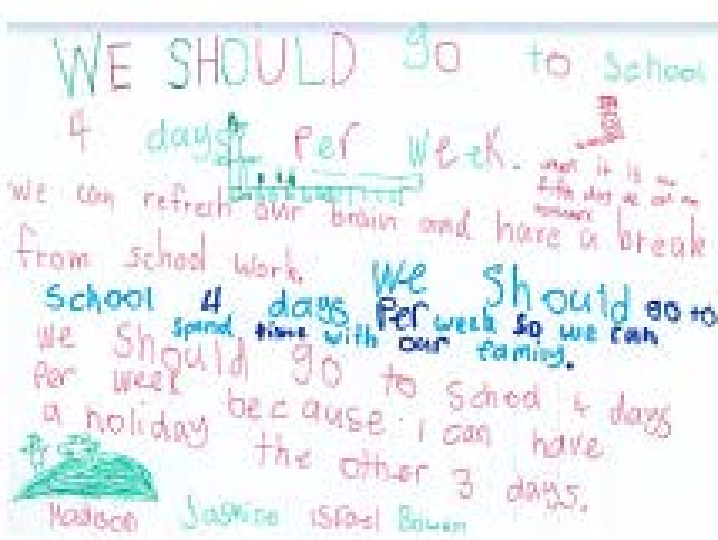 WE SHOULD go to School
4 days Per week.
it is
we can refresh our brain and have a break
from school work.
We Should go to
School 4 days Per week so we can
spend time with our family.
We Should go to School 4 days
Per week because i can have
a holiday the other 3 days.
Jasmine Israel Bowen